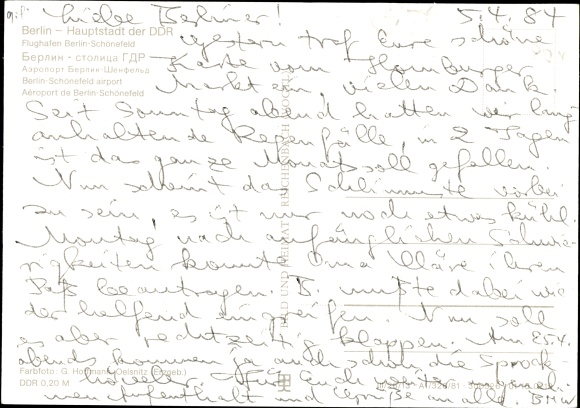 Liebe Berliner! 5.4.84
Berlin – Hauptstadt der DDR
Flughafen Berlin-Schönefeld
Берлин – столица ГДР
Аэропорт Берлин-Шенфельд
Berlin-Schönefeld airport
Aéroport de Berlin-Schönefeld
gestern traf Eure schöne
Karte vom Hamburger
Markt ein, vielen Dank.
Seit Sonntag abend hatten wir lang
anhaltende Regenfälle, in 2 Tagen
ist das ganze Monatssoll gefallen.
Nun scheint das Schlimmste vorbei
zu sein, es ist nur noch etwas kühl.
Montag nach anfänglichen Schwie-
rigkeiten konnte Oma Kläre ihren
Paß beantragen. I. mußte dabei wie-
der helfend eingreifen. Nun soll
es aber rechtzeitig klappen. Am 25.4.
abends kommen ja auch schon die Sprock-
höveler. Für Euch weiter
men Aufenthalt und Grüße an alle. BMW
BILD UND HEIMAT REICHENBACH (VOGTL)
Farbfoto: G. Hoffmann, Oelsnitz (Erzgeb.)
DDR 0,20 M